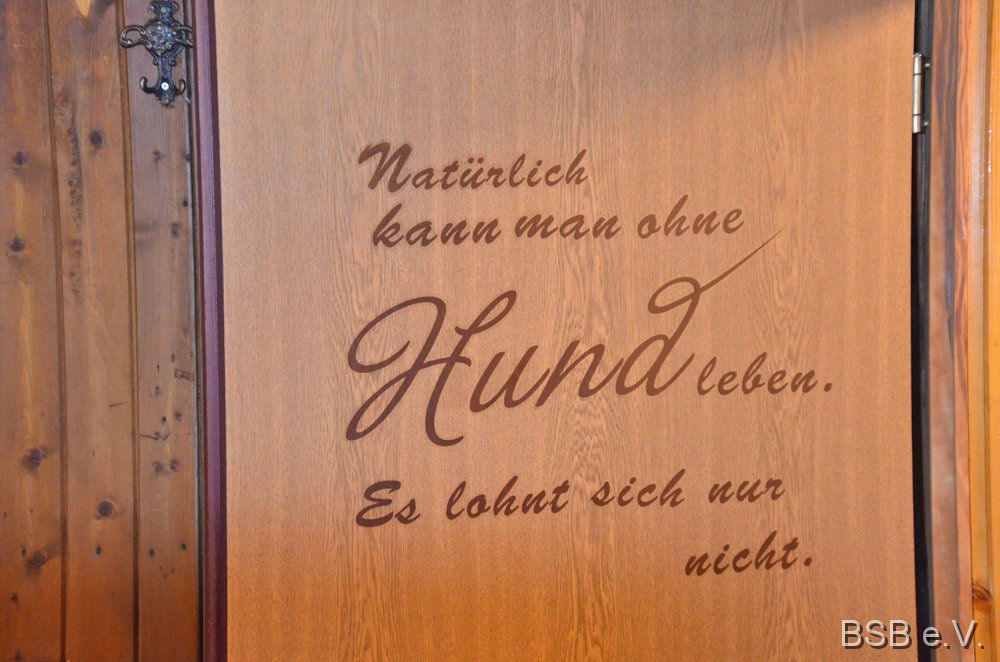 Natürlich
kann man ohne
Hund leben.
Es lohnt sich nur
nicht.
BSB e.V.